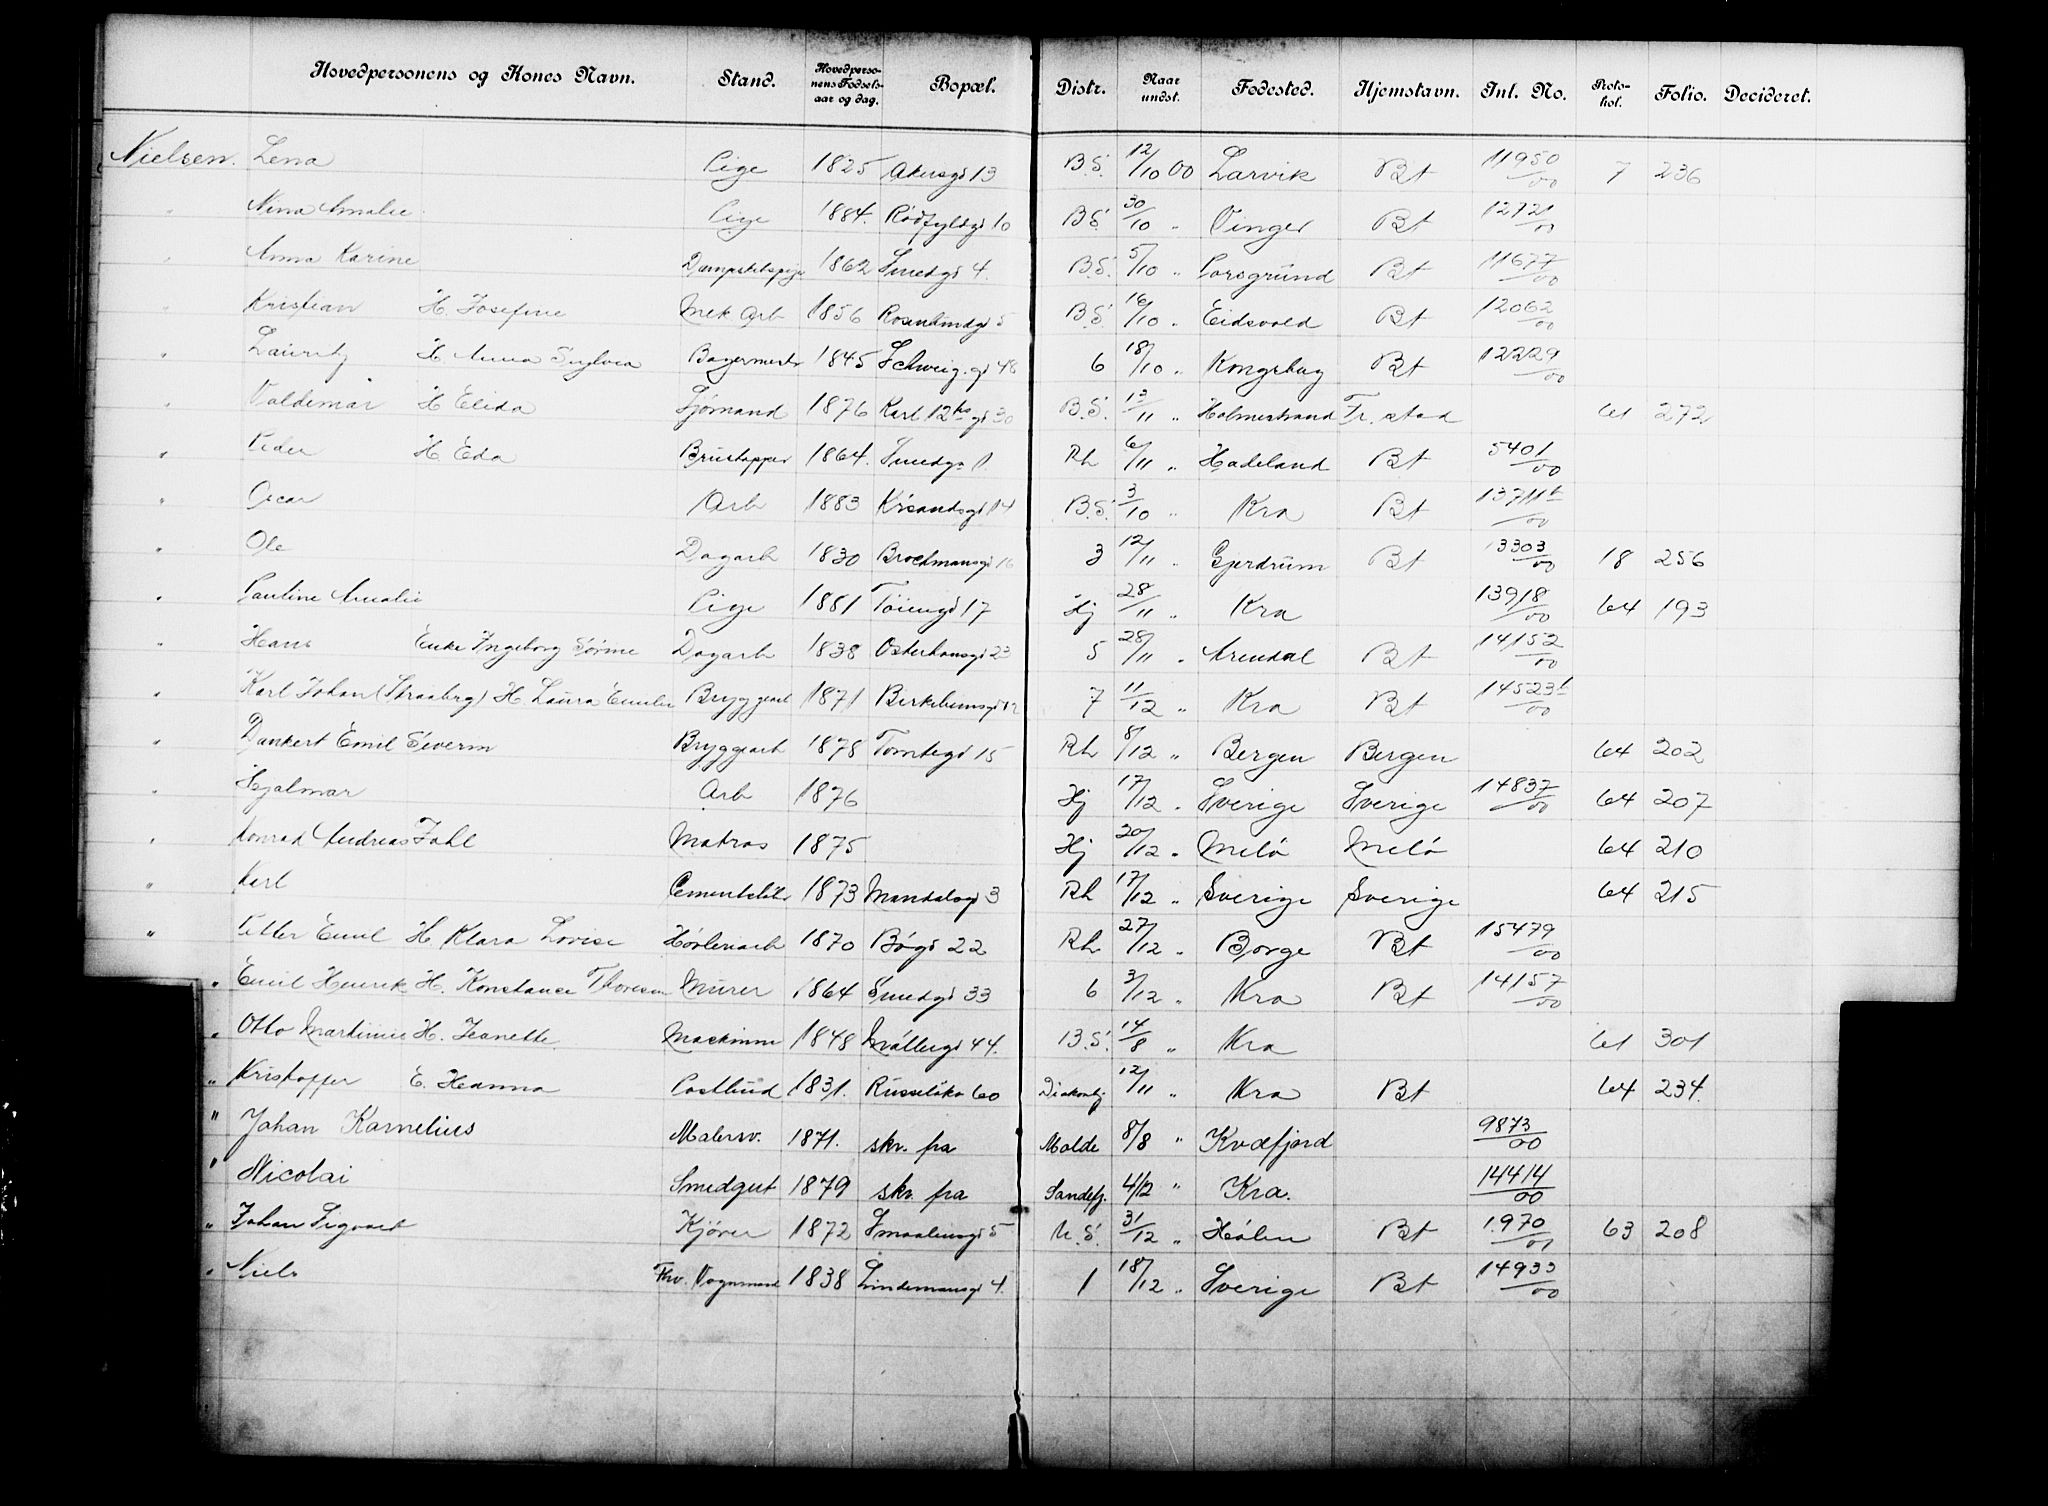 Hovedpersonens og Kones Navn. Stand. Hovedpersonens Fødselsaar og dag. Bopæl. Distr. Naar undst. Fødested. Hjemstavn. Inl. No. Protokol. Folio. Decideret.
Nielsen. Lena Pige 1825 Akersgd 13 B.S. 12/10 00 Larvik Bt 11950/00 7 236
" Nina Amalie Pige 1884. Rødfyldgd 10 B.S. 30/10 " Vinger Bt 12721/00
" Anna Karine 1862 Smedgd 4. B.S. 5/10 " Porsgrund Bt 11677/00
" Kristian H. Josefine Mek Arb 1856 Rosenlundgd 5 B.S. 16/10 " Eidsvold Bt 12062/00
" Lauritz H. Anna Sylvia Bagermester 1845 Schweig.gd 48 6 18/10 " Kongsbag Bt 12229/00
" Valdemar H Elida Sjömand 1876 Karl 12tes gd 30 B.S. 13/11 " Holmestrand Fr. stad 61 272
" Peder H. Eda Brustapper 1864. Smedgd 1. Rh 6/11 " Hadeland Bt 5401/00
" Oscar Arb 1883 Kr'sandsgd 14 B.S. 3/10 " Kra Bt 13711 b/00
" Ole Dagarb 1830 Brochmansgd 16 3 12/11 " Gjerdrum Bt 13303/00 18 256
" Pauline Amalie Pige 1881 Töiengd 17 Hj 28/11 " Kra 13918/00 64 193
" Hans Enke Ingeborg Sörine Dagarb 1838 Osterhausgd 23 5 28/11 " Arendal Bt 14152/00
" Karl Johan (Straaberg) H. Laura Emilie Bryggearb 1871 Birkebeinsgd 12 7 11/12 " Kra Bt 14523 b/00
" Dankert Emil Severin Bryggearb 1878 Tomtegd 15 Rh 8/12 " Bergen Bergen 64 202
" Hjalmar Arb 1876 Hj 17/12 " Sverige Sverige 14837/00 64 207
" Konrad Andreas Fahl Matros 1875 Hj 20/12 " Melö Melö 64 210
" Karl Cementstöber 1873 Mandalsgd 3 Rh 17/12 " Sverige Sverige 64 215
" Petter Emil H. Klara Lovise Høvleriarb 1870 Bögd 22 Rh 27/12 " Borge Bt 15479/00
" Emil Henrik H. Konstance Thoresen Murer 1864 Smedgd 33 6 3/12 " Kra Bt 14157/00
" Otto Martinius H. Jeanette Maskinm 1848 Möllergd 44. B.S. 14/8 " Kra 61 301
" Kristoffer E. Hanna Postbud 1831. Russelökv 60 Diakonhj. 12/11 " Kra Bt 64 234.
" Johan Kornelius Malersv. 1871. skr. fra Molde 8/8 " Kvæfjord 9873/00
" Nicolai Smedgut 1879 skr. fra Sandefj. 4/12 " Kra. 14414/00
" Johan Sigvart Kjörer 1872 Smaalensgd 5 U.S. 31/12 " Hölen Bt 1970/01 63 208
" Niels Fhv. Vognmand 1838 Lindemansgd 4. 1 18/12 " Sverige Bt 14933/00